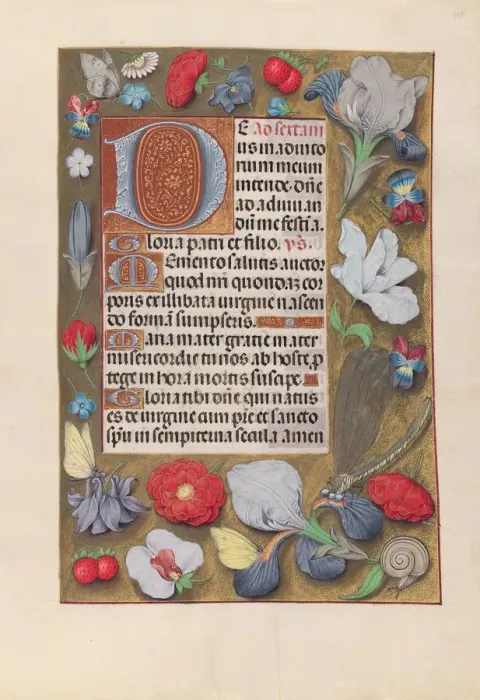 DE ad sextam
us in adiuto
rium meum
intende. dn̄e
ad adiuuan
dū me festina.
Gloria patri et filio. vs.
Memento salutis auctor
quod nr̄i quondaz cor
poris ex illibata uirgine nascen
do formā sumpseris.
Maria mater gratie mater
misericordie tu nos ab hoste p
tege in hora mortis suscipe.
Gloria tibi dn̄e qui natus
es de uirgine cum pr̄e et sancto
spū in sempiterna secula amen